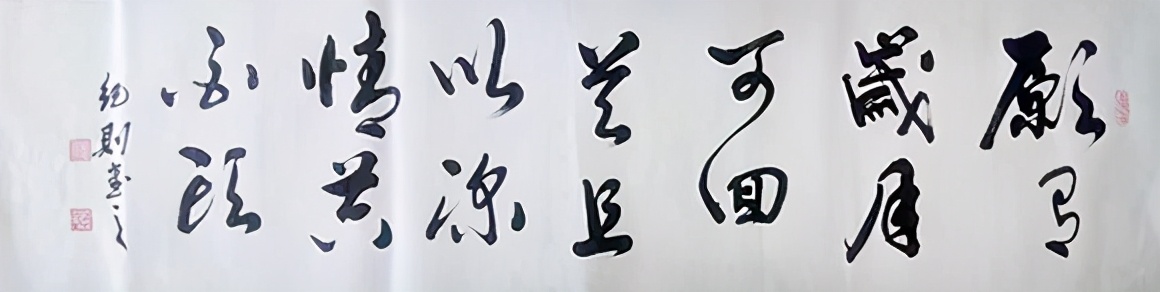 願有
歲月
可回
首且
以深
情共
白頭
則書之